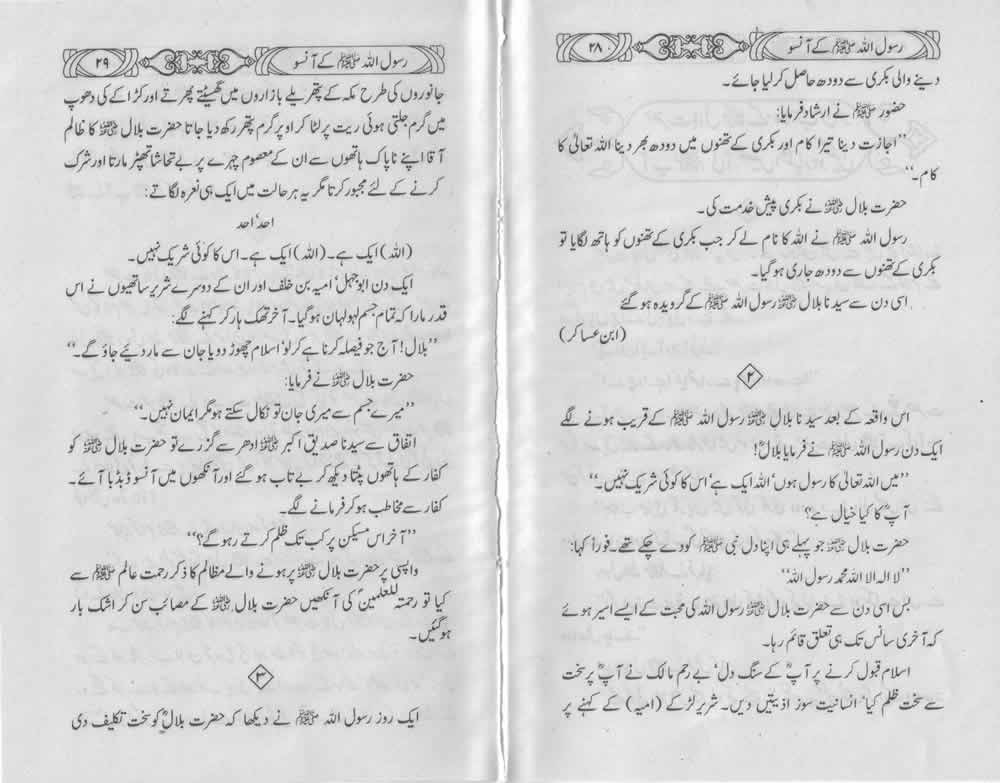 رسول اللہ ﷺ کے آنسو
۲۸
دینے والی بکری سے دودھ حاصل کر لیا جائے۔
حضور ﷺ نے ارشاد فرمایا:
’’اجازت دینا تیرا کام اور بکری کے تھنوں میں دودھ بھر دینا اللہ تعالیٰ کا
کام۔‘‘
حضرت بلال ؓ نے بکری پیش خدمت کی۔
رسول اللہ ﷺ نے اللہ کا نام لے کر جب بکری کے تھنوں کو ہاتھ لگایا تو
بکری کے تھنوں سے دودھ جاری ہو گیا۔
اسی دن سے سیدنا بلال ؓ رسول اللہ ﷺ کے گرویدہ ہو گئے
(ابن عساکر)
۲
اس واقعہ کے بعد سیدنا بلال ؓ رسول اللہ ﷺ کے قریب ہونے لگے
ایک دن رسول اللہ ﷺ نے فرمایا بلالؓ!
’’میں اللہ تعالیٰ کا رسول ہوں‘ اللہ ایک ہے‘ اس کا کوئی شریک نہیں۔‘‘
آپؓ کا کیا خیال ہے؟
حضرت بلال ؓ جو پہلے ہی اپنا دل نبی ﷺ کو دے چکے تھے۔ فوراً کہا:
’’لا الہ الا اللہ محمد رسول اللہ‘‘
بس اسی دن سے حضرت بلال ؓ رسول اللہ کی محبت کے ایسے اسیر ہوئے
کہ آخری سانس تک ہی تعلق قائم رہا۔
اسلام قبول کرنے پر آپؓ کے سنگ دل‘ بے رحم مالک نے آپؓ پر سخت
سے سخت ظلم کیا‘ انسانیت سوز اذیتیں دیں۔ شریر لڑکے (امیہ) کے کہنے پر
رسول اللہ ﷺ کے آنسو
۲۹
جانوروں کی طرح مکہ کے پتھریلے بازاروں میں گھسیٹتے پھرتے اور کڑاکے کی دھوپ
میں گرم جلتی ہوئی ریت پر لٹا کر اوپر گرم پتھر رکھ دیا جاتا حضرت بلال ؓ کا ظالم
آقا اپنے ناپاک ہاتھوں سے ان کے معصوم چہرے پر بے تحاشا تھپڑ مارتا اور شرک
کرنے کے لئے مجبور کرتا مگر یہ ہر حالت میں ایک ہی نعرہ لگاتے:
احد‘ احد
(اللہ) ایک ہے۔ (اللہ) ایک ہے۔ اس کا کوئی شریک نہیں۔
ایک دن ابو جہل‘ امیہ بن خلف اور ان کے دوسرے شریر ساتھیوں نے اس
قدر مارا کہ تمام جسم لہولہان ہو گیا۔ آخر تھک ہار کر کہنے لگے:
’’بلال! آج جو فیصلہ کرنا ہے کر لو‘ اسلام چھوڑ دو یا جان سے مار دیئے جاؤ گے۔‘‘
حضرت بلال ؓ نے فرمایا:
’’میرے جسم سے میری جان تو نکال سکتے ہو مگر ایمان نہیں۔‘‘
اتفاق سے سیدنا صدیق اکبر ؓ ادھر سے گزرے تو حضرت بلال ؓ کو
کفار کے ہاتھوں پٹتا دیکھ کر بے تاب ہو گئے اور آنکھوں میں آنسو ڈبڈبا آئے۔
کفار سے مخاطب ہو کر فرمانے لگے۔
’’آخر اس مسکین پر کب تک ظلم کرتے رہو گے؟‘‘
واپسی پر حضرت بلال ؓ پر ہونے والے مظالم کا ذکر رحمت عالم ﷺ سے
کیا تو رحمتہ للعلمینؐ کی آنکھیں حضرت بلال ؓ کے مصائب سن کر اشک بار
ہو گئیں۔
۳
ایک روز رسول اللہ ﷺ نے دیکھا کہ حضرت بلالؓ کو سخت تکلیف دی